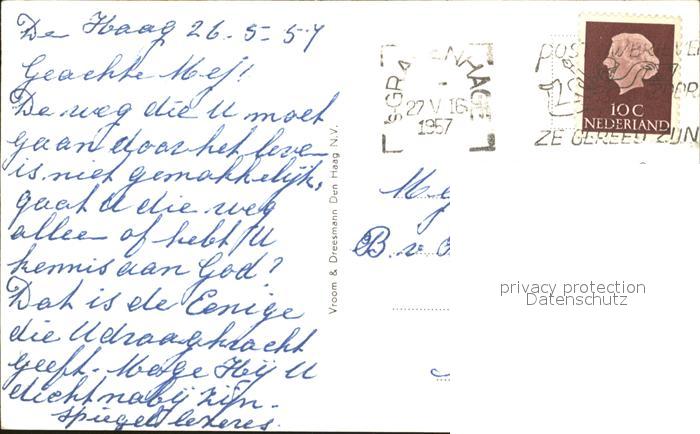 De Haag 26-5-57
Geachte Mej!
De weg die U moet
gaan door het leven
is niet gemakkelijk,
gaat U die weg
alleen of hebt U
kennis aan God?
Dat is de Eenige
die U draagkracht
geeft. Moge Hij U
dicht nabij zijn.
Spiegel lezeres.
Vroom & Dreesmann Den Haag N.V.
's-GRAVENHAGE
27 V 16
1957
POST UW BRIEVEN
ZE GEREED ZIJN
10 C
NEDERLAND
B. v.
privacy protection
Datenschutz